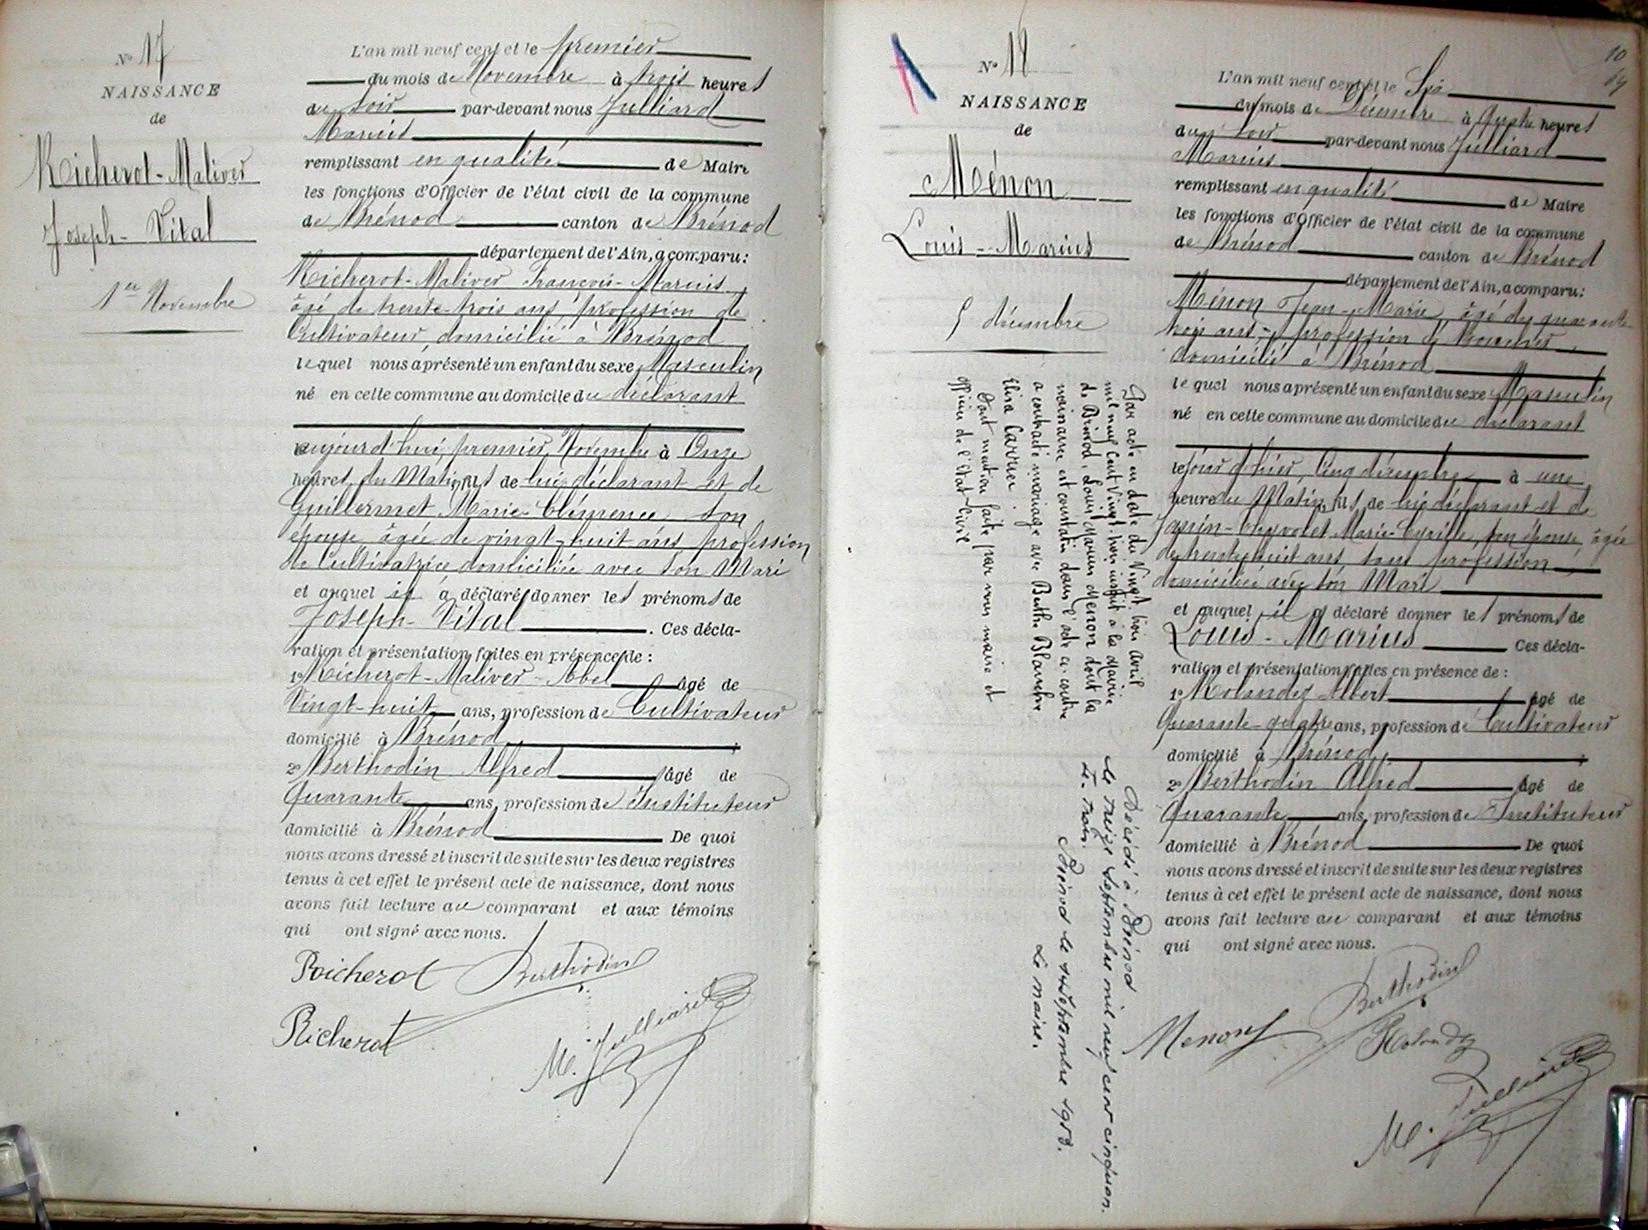 N° 17
NAISSANCE
de
Richerot-Maliver
Joseph-Vital
1er Novembre
L'an mil neuf cent et le premier
du mois de Novembre à trois heures
du soir par-devant nous Julliard
Marius
remplissant en qualité de Maire
les fonctions d'Officier de l'état civil de la commune
de Brénod canton de Brénod
département de l'Ain, a comparu:
Richerot-Maliver François-Marius
âgé de trente-trois ans, profession de
Cultivateur, domicilié à Brénod
lequel nous a présenté un enfant du sexe Masculin
né en cette commune au domicile du déclarant
aujourd'hui premier Novembre à Onze
heures du Matin, fils de lui déclarant et de
Guillermet Marie-Clémence son
épouse âgée de vingt-huit ans profession
de Cultivatrice domiciliée avec son Mari
et auquel il a déclaré donner les prénoms de
Joseph-Vital. Ces décla-
ration et présentation faites en présence de :
1° Richerot-Maliver-Abel âgé de
Vingt-huit ans, profession de Cultivateur
domicilié à Brénod ;
2° Berthodin Alfred âgé de
Quarante ans, profession de Instituteur
domicilié à Brénod De quoi
nous avons dressé et inscrit de suite sur les deux registres
tenus à cet effet le présent acte de naissance, dont nous
avons fait lecture au comparant et aux témoins
qui ont signé avec nous.
Richerot Berthodin
Richerot
M. Julliard
10
19
N° 18
NAISSANCE
de
Ménon
Louis-Marius
5 décembre
Par acte en date du Vingt trois avril
mil neuf cent vingt trois inscrit à la Mairie
de Brénod, Louis Marius Menon dont la
naissance est constatée dans l'acte ci contre
a contracté mariage avec Berthe Blanche
Elisa Carrier.
Dont mention faite par nous maire et
officier de l'Etat-Civil
Décédé à Brénod
le treize septembre mil neuf cent cinquan.
te-trois.
Brénod le septembre 1953.
Le maire.
L'an mil neuf cent et le Six
du mois de Décembre à Quatre heures
du soir par-devant nous Julliard
Marius
remplissant en qualité de Maire
les fonctions d'Officier de l'état civil de la commune
de Brénod canton de Brénod
département de l'Ain, a comparu:
Ménon Jean-Marie, âgé de quarante
trois ans, profession de
domicilié à Brénod
lequel nous a présenté un enfant du sexe Masculin
né en cette commune au domicile du déclarant
le jour d'hier Cinq décembre à une
heure du Matin, fils de lui déclarant et de
Marie-Cyrille, son épouse, âgée
de trente-huit ans sans profession
domiciliée avec son Mari
et auquel il a déclaré donner les prénoms de
Louis-Marius Ces décla-
ration et présentation faites en présence de :
1° Molandez Albert âgé de
Quarante-quatre ans, profession de Cultivateur
domicilié à Brénod ;
2° Berthodin Alfred âgé de
Quarante ans, profession de Instituteur
domicilié à Brénod De quoi
nous avons dressé et inscrit de suite sur les deux registres
tenus à cet effet le présent acte de naissance, dont nous
avons fait lecture au comparant et aux témoins
qui ont signé avec nous.
Berthodin
Menon
M. Julliard